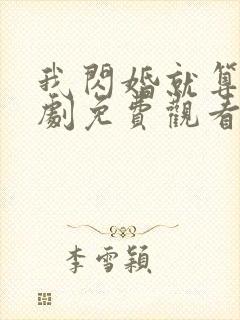 我閃婚就算
劇免費觀看
李雪穎